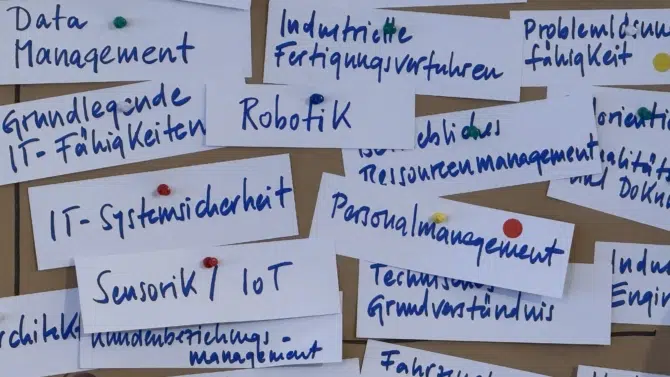 Data
Management
Industrielle
Fertigungsverfahren
Problemlösun
fähigkeit
Grundlegende
IT-Fähigkeiten
Robotik
bliches
Ressourcenmanagement
orientie
ealitäts
und Dokum
IT-Systemsicherheit
Personalmanagement
Sensorik / IoT
Technisches
Grundverständnis
Indus
Engin
rchitek
Kundenbeziehungs-
management
Fahrzeu